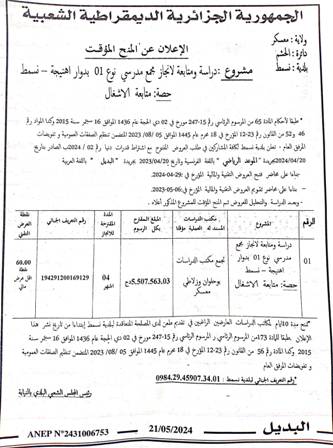 الجمهورية الجزائرية الديمقراطية الشعبية
ولاية: معسكر
دائرة: الحشم
بلدية: نسمط
الإعلان عن المنح المؤقت
مشروع: دراسة ومتابعة لانجاز مجمع مدرسي نوع 01 بدوار اهتيجة – نسمط
حصة: متابعة الاشغال
- طبقا لأحكام المادة 65 من المرسوم الرئاسي رقم 15-247 مؤرخ في 02 ذي الحجة عام 1436 الموافق 16 سبتمبر سنة 2015 وكذا المواد رقم
46 و52 من القانون رقم 23-12 المؤرخ في 18 محرم عام 1445 الموافق 05 /08/ 2023 المتضمن تنظيم الصفقات العمومية و تفويضات
المرفق العام - تعلن بلدية نسمط لكافة المشاركين في طلب العروض المفتوح مع اشتراط قدرات دنيا رقم 02/ الصادر بتاريخ
2024/04/20 بجريدة "الموعد الرياضي" باللغة الفرنسية وتاريخ 2023/04/20 بجريدة "البديل" باللغة العربية
بناءا على محاضر فتح العروض التقنية والمالية المؤرخ في: 29-04-2024.
- بناءا على محاضر تقويم العروض التقنية والمالية المؤرخ في: 06-05-2023.
- وبعد الدراسة والتحليل للعروض تم المنح المؤقت للمشروع المذكور أعلاه:
الرقم
المشروع
مكتب الدراسات المسند له العملية مؤقتا
المبلغ المقترح بكل الرسوم
المدة المقترحة للانجاز
رقم التعريف الجبائي
نقطة العرض التقني
01
دراسة ومتابعة لانجاز مجمع
مدرسي نوع 01 بدوار
اهتيجة – نسمط
حصة: متابعة الاشغال
تجمع مكتب الدراسات
بوحلوان وزلاطي
معسكر
5.507.563.03دج
04
اشهر
194291200169129
60.00
اقل عرض
مالي
- تمنح مدة 10 أيام لمكاتب الدراسات العارضين الراغبين في تقديم طعن لدى المصلحة المتعاقدة لبلدية نسمط إبتداءا من تاريخ نشر هذا
الإعلان طبقا للمادة 173 من المرسوم الرئاسي و المرسوم الرئاسي رقم 15-247 مؤرخ في 02 ذي الحجة عام 1436 الموافق 16 سبتمبر سنة
2015 وكذا المادة رقم 56 من القانون رقم 23-12 المؤرخ في 18 محرم عام 1445 الموافق 05 /08/ 2023 المتضمن تنظيم الصفقات العمومية
و تفويضات المرفق العام
*رقم التعريف الجبائي لبلدية نسمط: 0984.29.45907.34.01
رئيس المجلس الشعبي البلدي بالنيابة
ANEP N°2431006753
21/05/2024
البديل